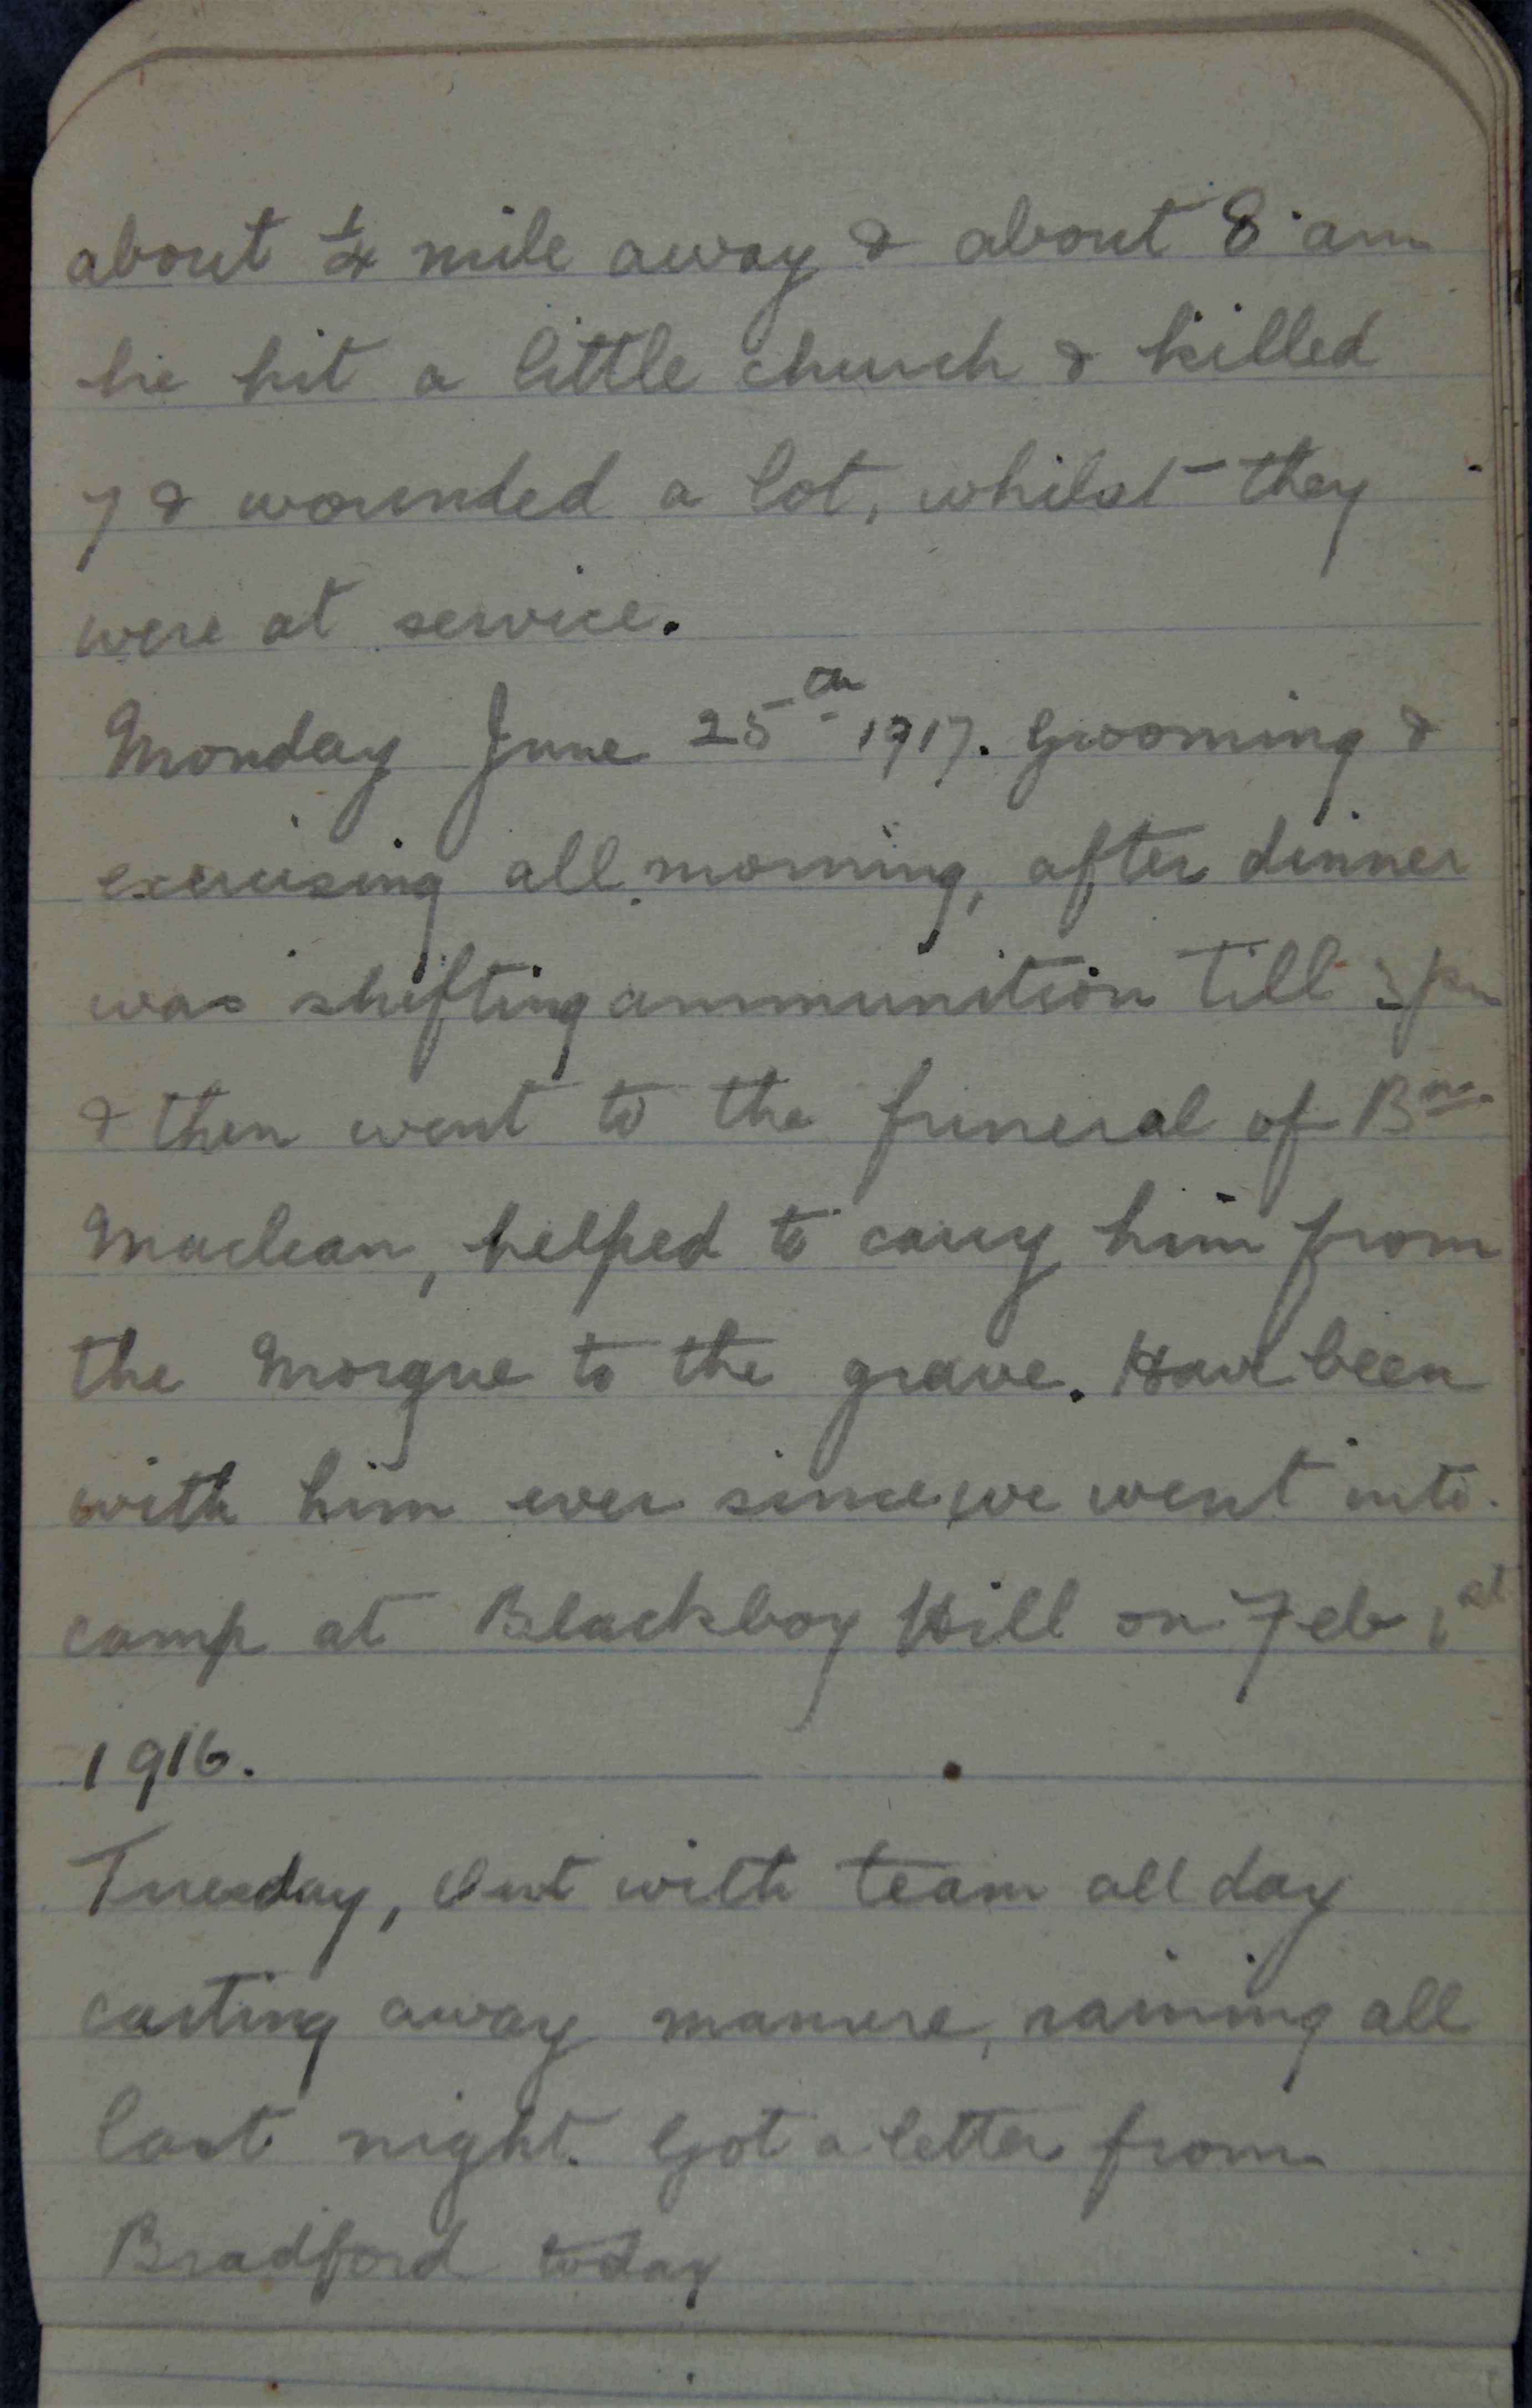 about ¼ mile away & about 8 am
he hit a little church & killed
7 & wounded a lot, whilst they
were at service.
Monday June 25th 1917. Grooming &
exercising all morning, after dinner
was shifting ammunition till pm
& then went to the funeral of Bnr.
Maclean, helped to carry him from
the Morgue to the grave. Have been
with him ever since we went into
camp at Blackboy Hill on Feb 1st
1916.
Tuesday, Out with team all day
carting away manure, raining all
last night. Got a letter from
Bradford today